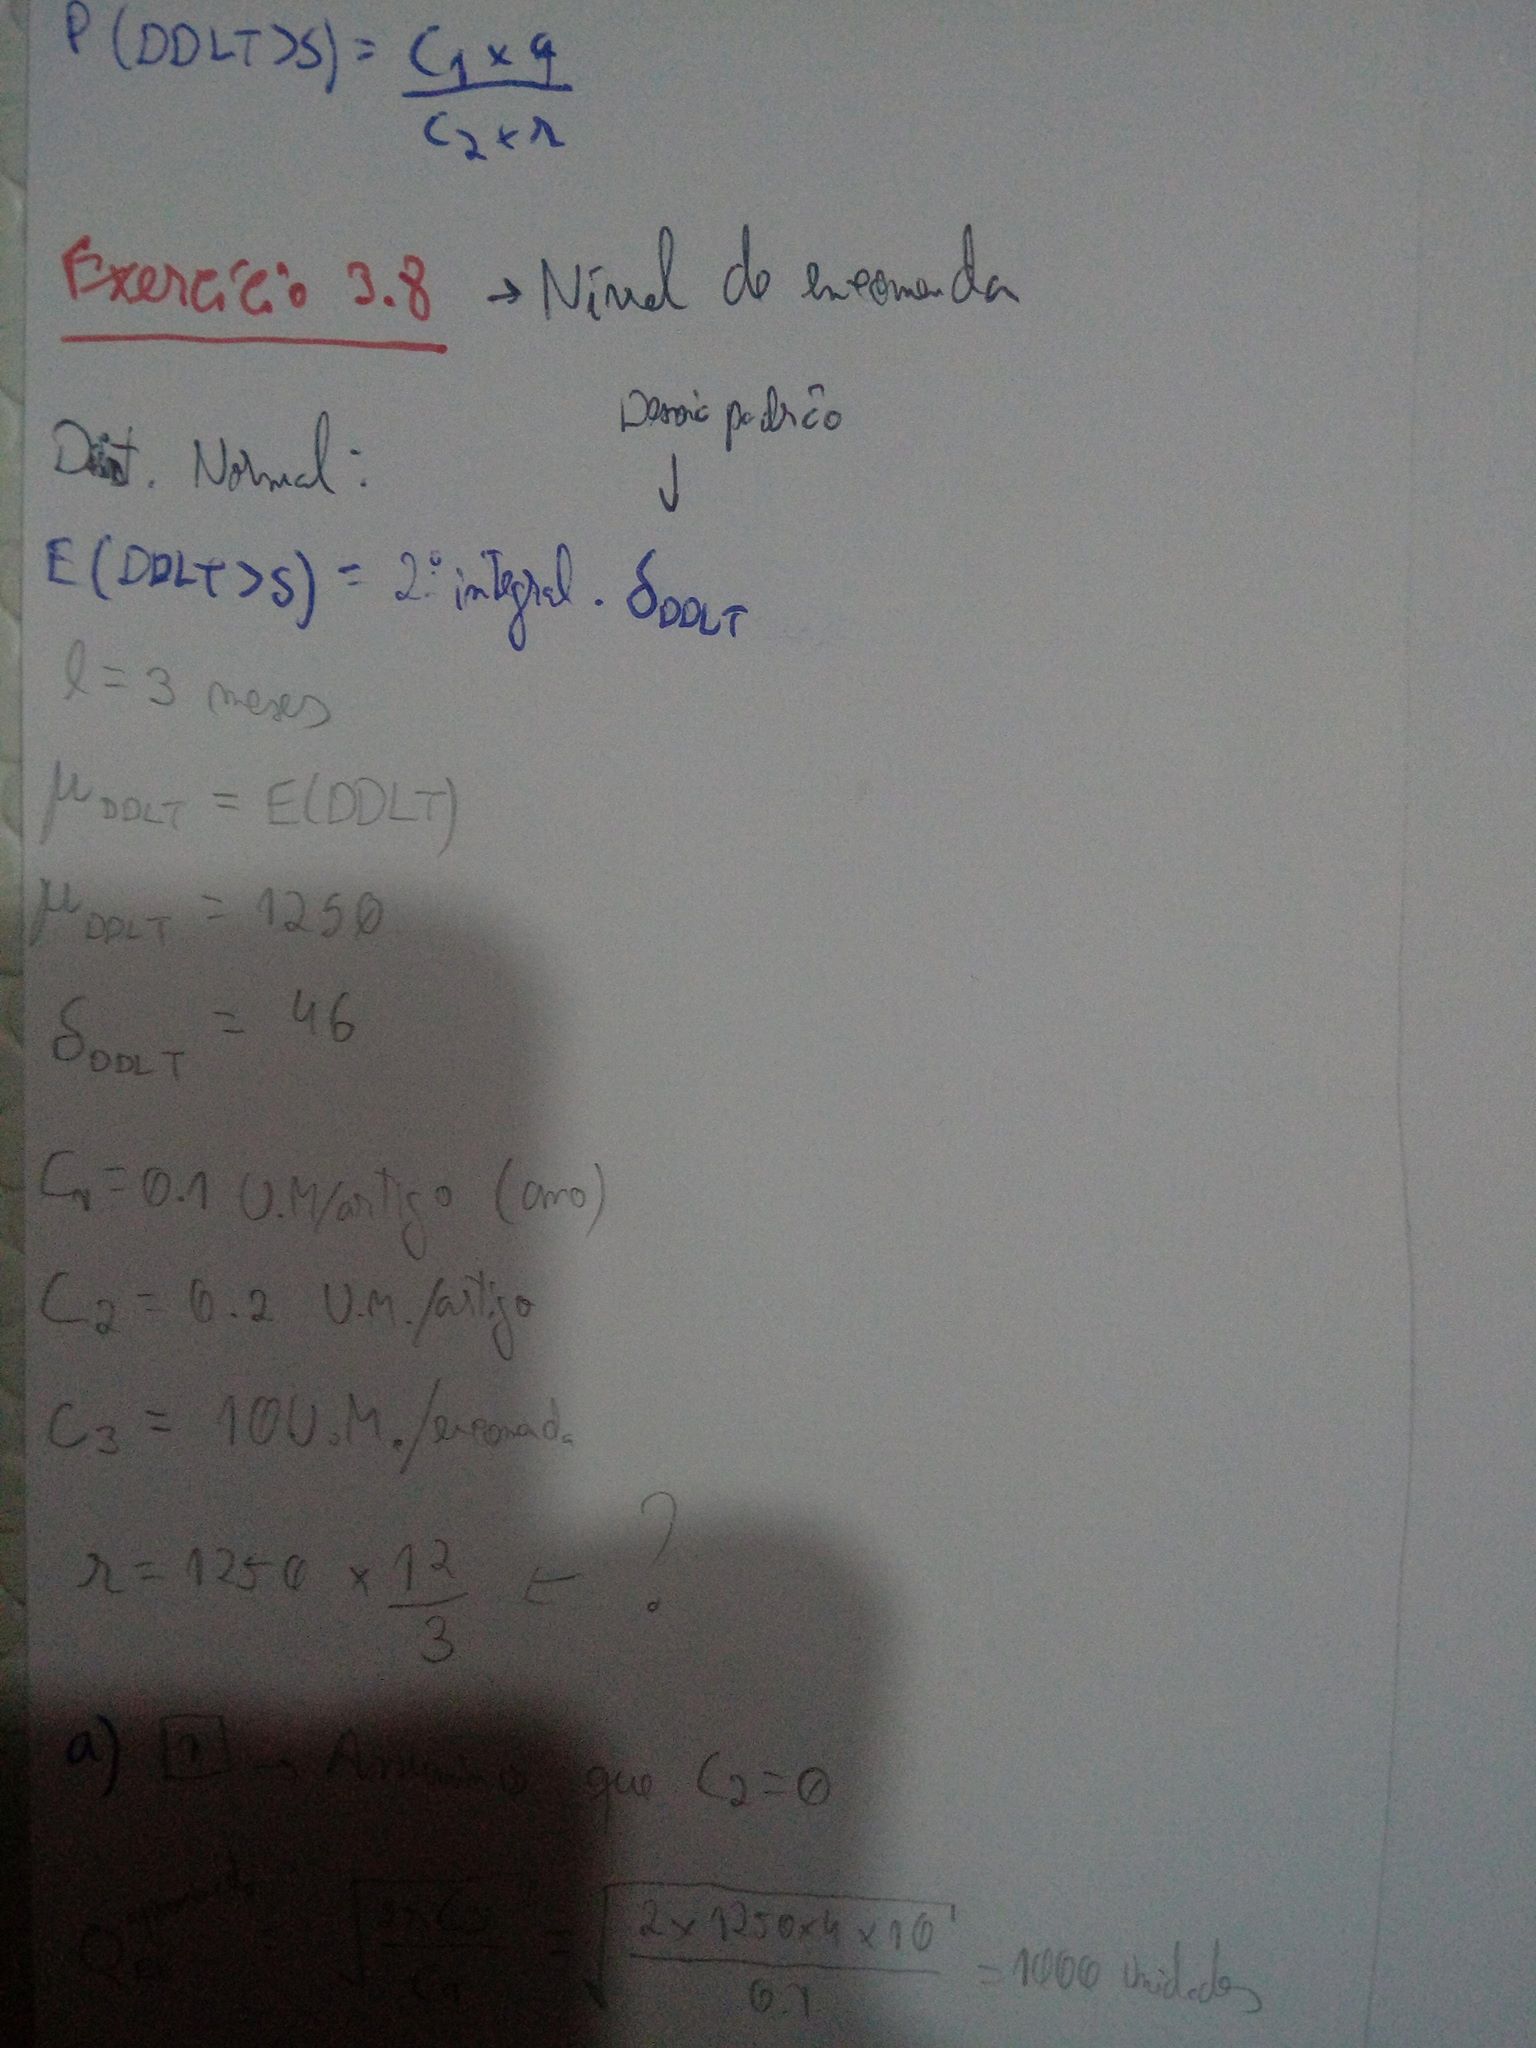 P(DDLT>S) = C1 x q
C2 x r
Exercício 3.8 → Nível de encomenda
Desvio padrão
↓
Dist. Normal:
E(DDLT>S) = 2º integral . δDDLT
l = 3 meses
μDDLT = E(DDLT)
μDDLT = 1250
δDDLT = 46
C1 = 0.1 U.M/artigo (ano)
C2 = 0.2 U.M./artigo
C3 = 10 U.M./encomenda
r = 1250 x 12/3 ← ?
a) 1 → Assumimos que C2 = 0
= √ = √ 2 x 1250 x 4 x 10 / 0.1 = 1000 unidades